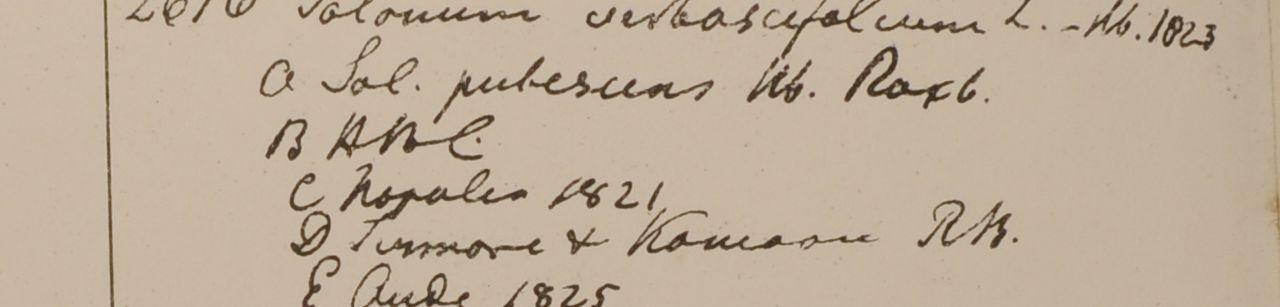 2616 Solanum verbascifolium L. - Hb. 1823
a Sol. pubescens Hb. Roxb.
B HBC
C Napalia 1821
D Sirmore & Kamaon RB.
E Oude 1825